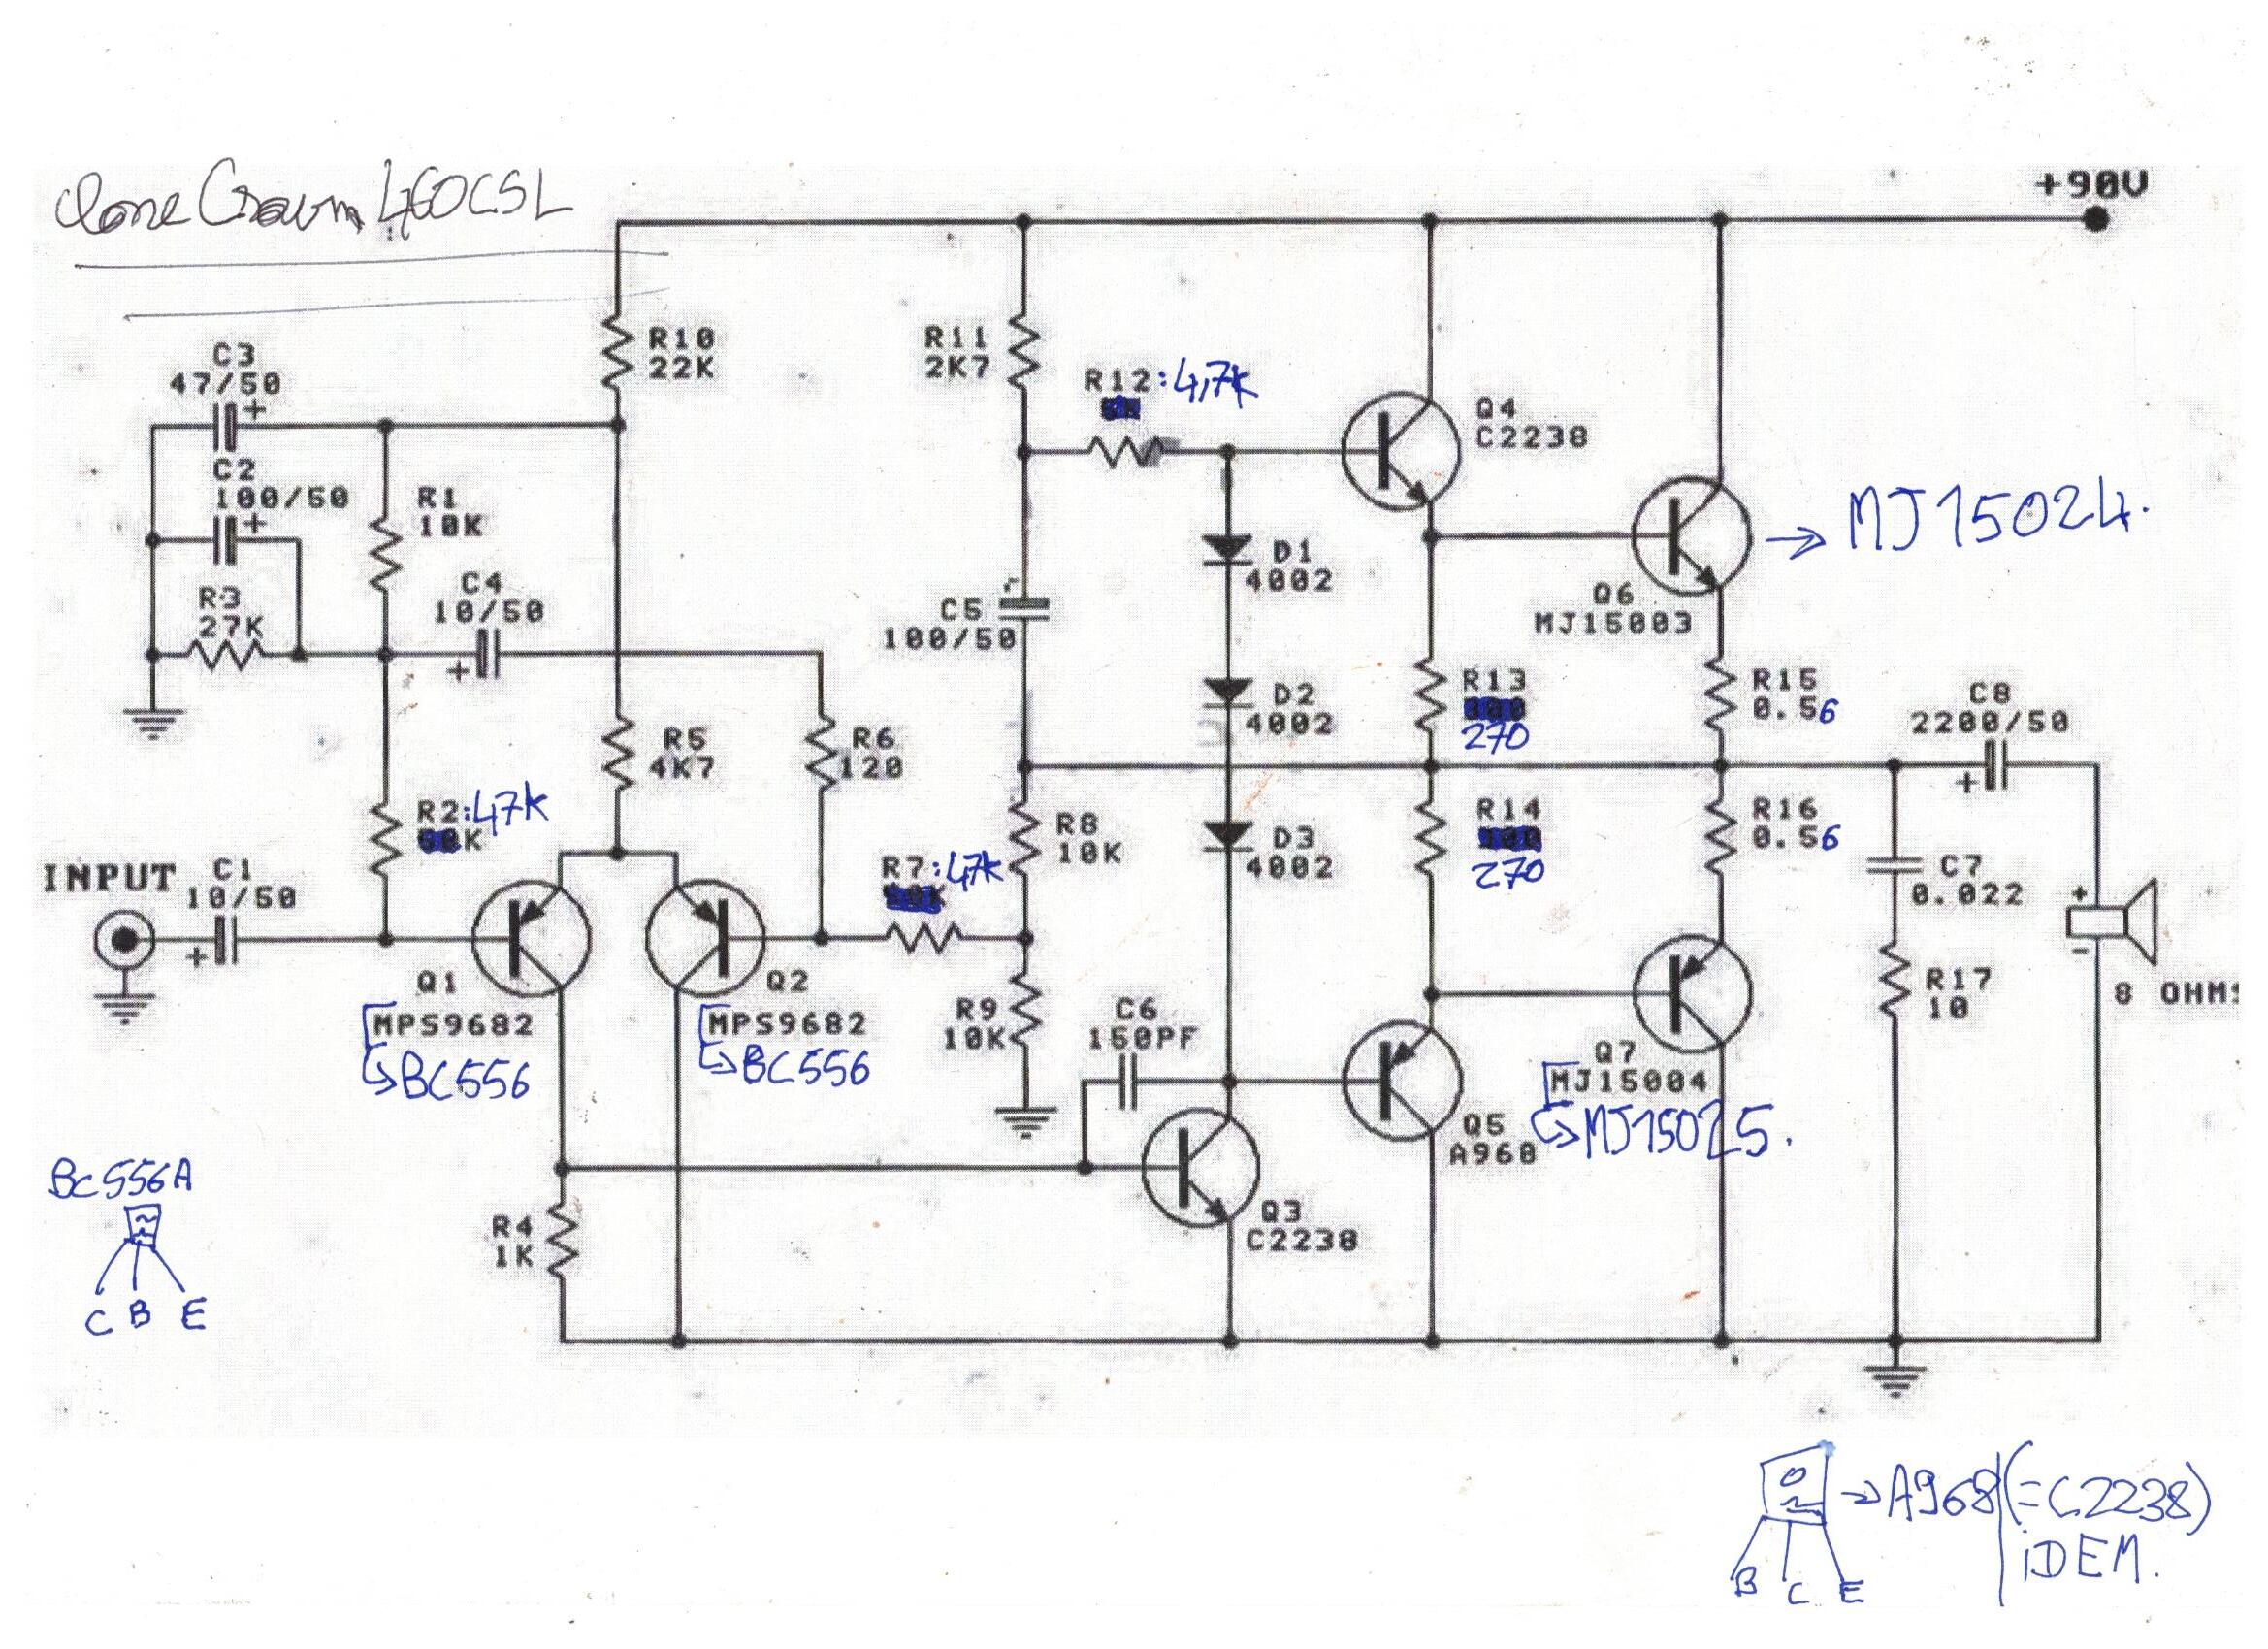 Clone Crown 460CSL
+90V
C3
47/50
+
R10
22K
R11
2K7
R12:4,7k
Q4
C2238
C2
100/50
+
R1
10K
→ MJ15024.
D1
4002
C4
10/50
+
R3
27K
C5
100/50
Q6
MJ15003
D2
4002
R13
270
R15
0.56
C8
2200/50
+
R5
4K7
R6
120
R2:47k
K
R8
10K
D3
4002
R14
270
R16
0.56
INPUT
C1
10/50
+
R7:47k
C7
0.022
+
-
8 OHMS
Q1
MPS9682
↳BC556
Q2
MPS9682
↳BC556
R9
10K
C6
150PF
R17
10
Q7
MJ15004
↳MJ15025.
Q5
A968
BC556A
C B E
R4
1K
Q3
C2238
→A968(=C2238)
iDEM.
B C E